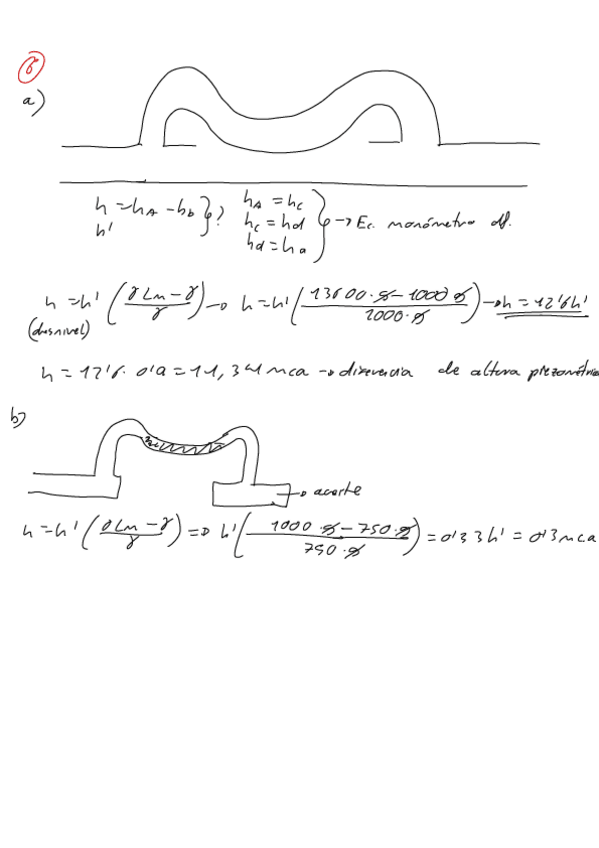 6
a)
h = hA - hb } ? hA = hc
h' hc = hd } → Ec. manómetro df.
hd = ha
h = h' (γLm - γ / γ) → h = h' (13600·g - 1000 g / 1000·g) → h = 12'6h'
(desnivel)
h = 12'6 · 0'9 = 11,34 mca → diferencia de altura piezométrica
b)
→ aceite
h = h' (γLm - γ / γ) => h' (1000·g - 750·g / 750·g) = 0'33h' = 0'3mca